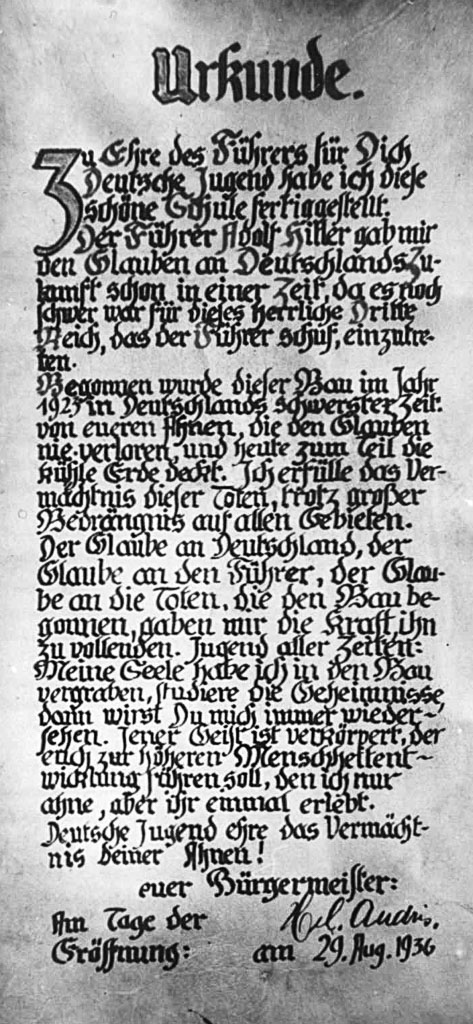 Urkunde.
Zu Ehre des Führers für Dich
Deutsche Jugend habe ich diese
schöne Schule fertiggestellt.
Der Führer Adolf Hitler gab mir
den Glauben an Deutschlands Zu-
kunft schon in einer Zeit, da es noch
schwer war für dieses herrliche Dritte
Reich, das der Führer schuf, einzutre-
ten.
Begonnen wurde dieser Bau im Jahr
1923 in Deutschlands schwerster Zeit.
von eueren Ahnen, die den Glauben
nie verloren, und heute zum Teil die
kühle Erde deckt. Ich erfülle das Ver-
mächtnis dieser Toten, trotz großer
Bedrängnis auf allen Gebieten.
Der Glaube an Deutschland, der
Glaube an den Führer, der Glau-
be an die Toten, die den Bau be-
gonnen, gaben mir die Kraft, ihn
zu vollenden. Jugend aller Zeiten:
Meine Seele habe ich in den Bau
vergraben, studiere die Geheimnisse,
dann wirst Du mich immer wieder-
sehen. Jener Geist ist verkörpert, der
euch zur höheren Menschheitent-
wicklung führen soll, den ich nur
ahne, aber ihr einmal erlebt.
Deutsche Jugend ehre das Vermächt-
nis deiner Ahnen!
euer Bürgermeister:
Am Tage der
Eröffnung: am 29. Aug. 1936